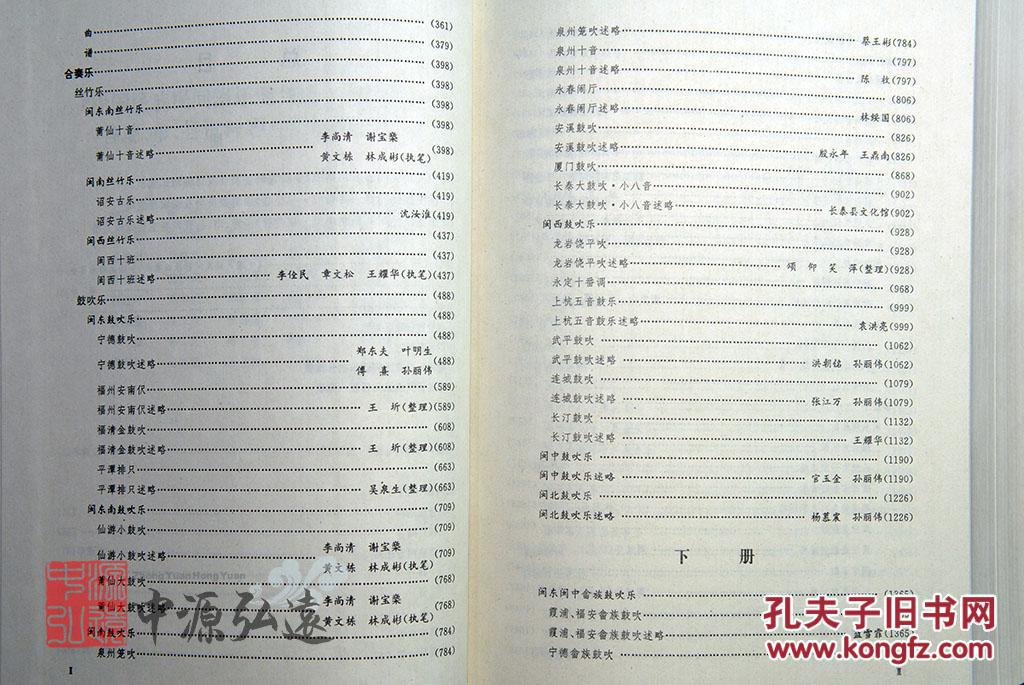 曲 (361)
谱 (379)
合奏乐 (398)
丝竹乐 (398)
闽东南丝竹乐 (398)
莆仙十音 (398)
莆仙十音述略 李尚清 谢宝燊 黄文栋 林成彬(执笔) (398)
闽南丝竹乐 (419)
诏安古乐 (419)
诏安古乐述略 沈汝淮(419)
闽西丝竹乐 (437)
闽西十班 (437)
闽西十班述略 李佺民 章文松 王耀华(执笔)(437)
鼓吹乐 (488)
闽东鼓吹乐 (488)
宁德鼓吹 (488)
宁德鼓吹述略 郑东夫 叶明生 傅熹 孙丽伟 (488)
福州安南伬 (589)
福州安南伬述略 王 圻(整理)(589)
福清金鼓吹 (608)
福清金鼓吹述略 王 圻(整理)(608)
平潭排只 (663)
平潭排只述略 吴泉生(整理)(663)
闽东南鼓吹乐 (709)
仙游小鼓吹 (709)
仙游小鼓吹述略 李尚清 谢宝燊 黄文栋 林成彬(执笔) (709)
莆仙大鼓吹 (768)
莆仙大鼓吹述略 李尚清 谢宝燊 黄文栋 林成彬(执笔) (768)
闽南鼓吹乐 (784)
泉州笼吹 (784)
I
泉州笼吹述略 蔡王彬(784)
泉州十音 (797)
泉州十音述略 陈 枚(797)
永春闹厅 (806)
永春闹厅述略 林绥国(806)
安溪鼓吹 (826)
安溪鼓吹述略 殷永年 王鼎南(826)
厦门鼓吹 (868)
长泰大鼓吹·小八音 (902)
长泰大鼓吹·小八音述略 长泰县文化馆(902)
闽西鼓吹乐 (928)
龙岩饶平吹 (928)
龙岩饶平吹述略 颂 仰 笑 萍(整理)(928)
永定十番调 (968)
上杭五音鼓乐 (999)
上杭五音鼓乐述略 袁洪亮(999)
武平鼓吹 (1062)
武平鼓吹述略 洪朝铭 孙丽伟(1062)
连城鼓吹 (1079)
连城鼓吹述略 张江万 孙丽伟(1079)
长汀鼓吹 (1132)
长汀鼓吹述略 王耀华(1132)
闽中鼓吹乐 (1190)
闽中鼓吹乐述略 官玉金 孙丽伟(1190)
闽北鼓吹乐 (1226)
闽北鼓吹乐述略 杨慕震 孙丽伟(1226)
下 册
闽东闽中畲族鼓吹乐 (1365)
霞浦、福安畲族鼓吹
霞浦、福安畲族鼓吹述略 蓝雪霏(1365)
宁德畲族鼓吹
II
中源弘远
Zhong Yuan Hong Yuan
中源弘遠
孔夫子旧书网
www.kongfz.com